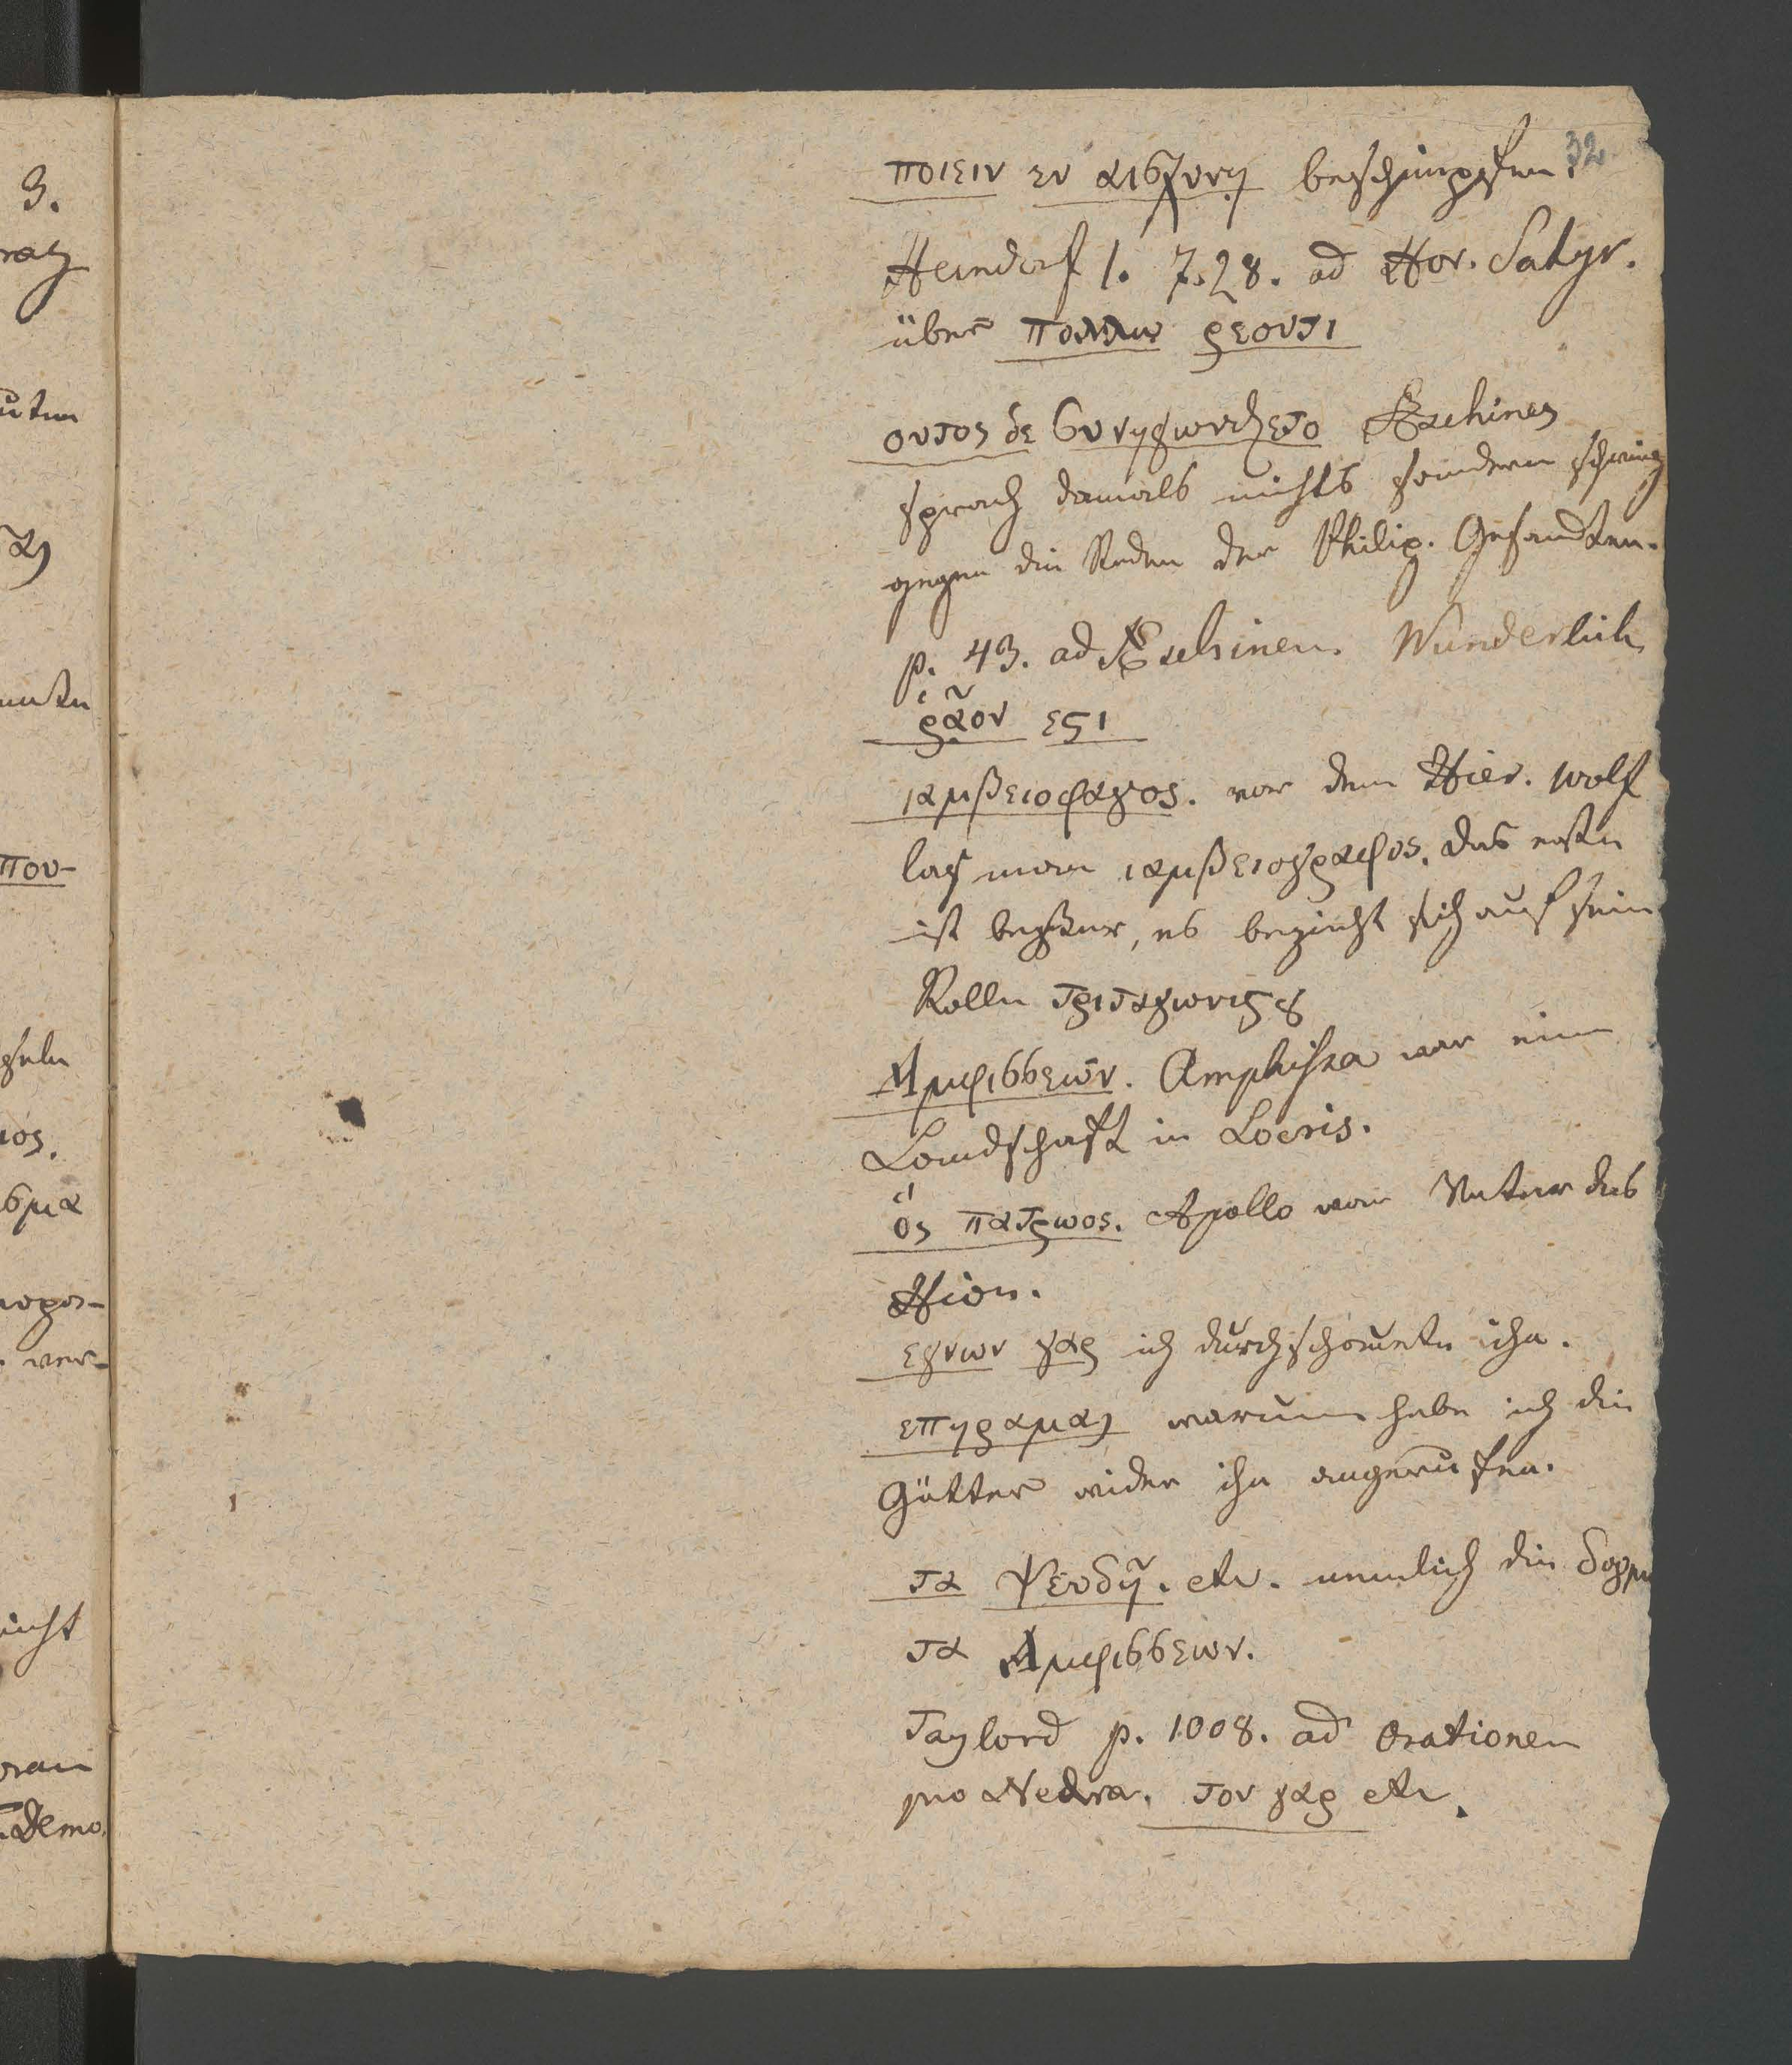 3.
32
ποιειν εν αισχυνη beschimpfen.
Heindorf 1. 7. 28. ad Hor. Satyr.
über πολλω ρεοντι
ουτος δε συνηγωνιζετο Æschines
sprach damals nichts sondern schwieg
gegen die Reden der Philip. Gesandten.
p. 43. ad Æschinen. Wunderlich
ῥᾷον εϛι
ιαμβειοφαγος. vor dem Hier. Wolf
las man ιαμβειογραφος. das erste
ist besser, es bezieht sich auf sein
Rolle τριταγωνιϛȣ
Αμφισσεῶν. Amphissa war eine
Landschaft in Locris.
ὅς πατρωος. Apollo war Vater des
Hion.
εγνων γαρ ich durchschauete ihn.
επηραμαι warum habe ich die
Götter wider ihn angerufen.
τα ψευδῆ. etc. nemlich die δογμα
τα Αμφισσεων.
Taylord p. 1008. ad Orationem
pro Neaera. τον γαρ etc.
που-
ος.
σμα
ver-
nicht
Demo.